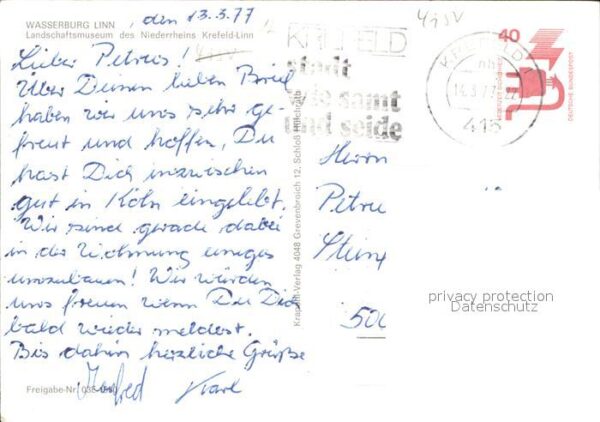 WASSERBURG LINN
Landschaftsmuseum des Niederrheins Krefeld-Linn
, den 13.3.77
Lieber Petrus!
Über Deinen lieben Brief
haben wir uns sehr ge-
freut und hoffen, Du
hast Dich inzwischen
gut in Köln eingelebt.
Wir sind gerade dabei
in der Wohnung einiges
umzubauen! Wir würden
uns freuen wenn Du Dich
bald wieder meldest.
Bis dahin herzliche Grüße
Manfred Karl
Freigabe-Nr.
Verlag 4048 Grevenbroich 12, Schloß Hülchrath
KREFELD
stadt
wie samt
und seide
KREFELD
14.3.77
415
40
DEUTSCHE BUNDESPOST
Herrn
Petru
Stein
500
privacy protection
Datenschutz